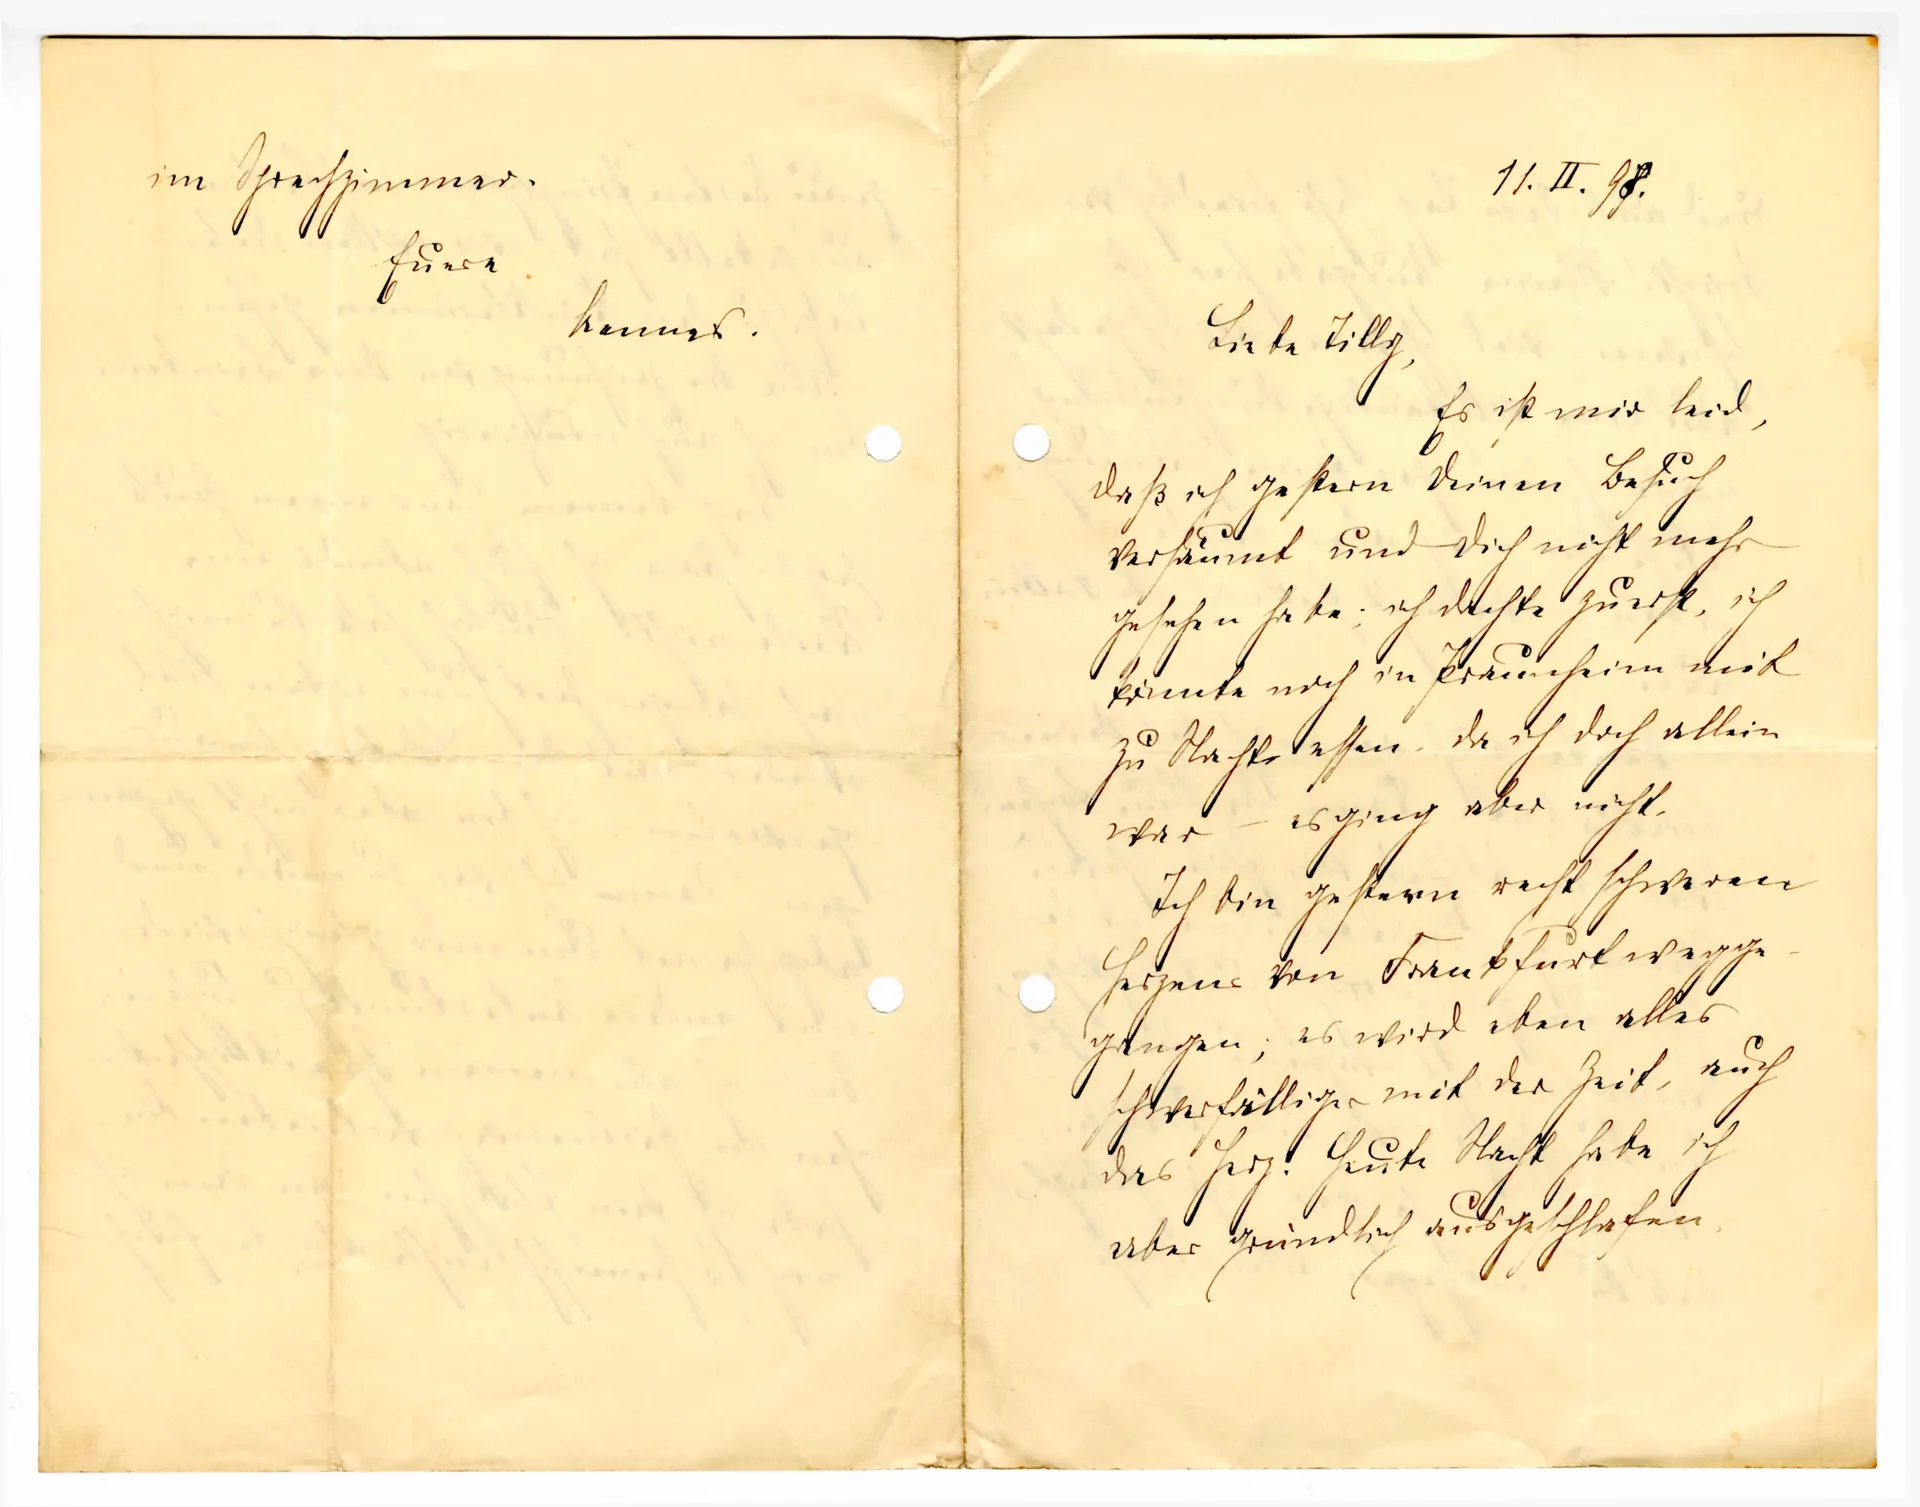 im Sprechzimmer.
Euere
Hannes.
11. II. 98.
Liebe Tilly,
Es ist mir leid,
daß ich gestern Deinen Besuch
versäumt und Dich nicht mehr
gesehen habe; ich dachte zuerst, ich
könnte noch in Praunheim mit
zu Nacht essen, da ich doch allein
war – es ging aber nicht.
Ich bin gestern recht schweren
Herzens von Frankfurt wegge-
gangen; es wird eben alles
schwerfälliger mit der Zeit, auch
das Herz. Heute Nacht habe ich
aber gründlich ausgeschlafen.